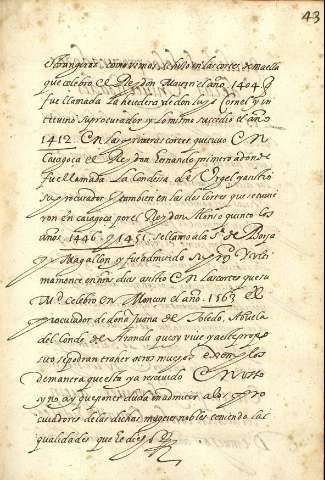 43
que celebro el Rey don Martin el año 1404
fue llamada La heredera de don luys Cornel y in
tituiio su procurador y lo mismo sucedio el año
1412 En las primeras cortes que tuuo en
Caragoça el Rey don hernando primero adonde
fue llamada La Condesa de Vrgel y asistio
su procurador y tambien en las dos cortes que se tuuie
ron en caragoça por el Rey don Alonso quinto los
años 1446 y 1451 se llamo a la Sª de Borja
y Magallon y fue admitido su pror y vlti
mamente en nros dias asistio En las cortes que su
Md celebro en Monçon el año 1563 el
procurador de doña Juana de Toledo, Abuela
del Conde de Aranda que oy viue y a este propo
sito se podran traher otros muchos exemplos
de manera que esta ya resceuido
y no ay que poner duda en admitir a los pro
curadores de las dichas mugeres nobles teniendo las
qualidades que